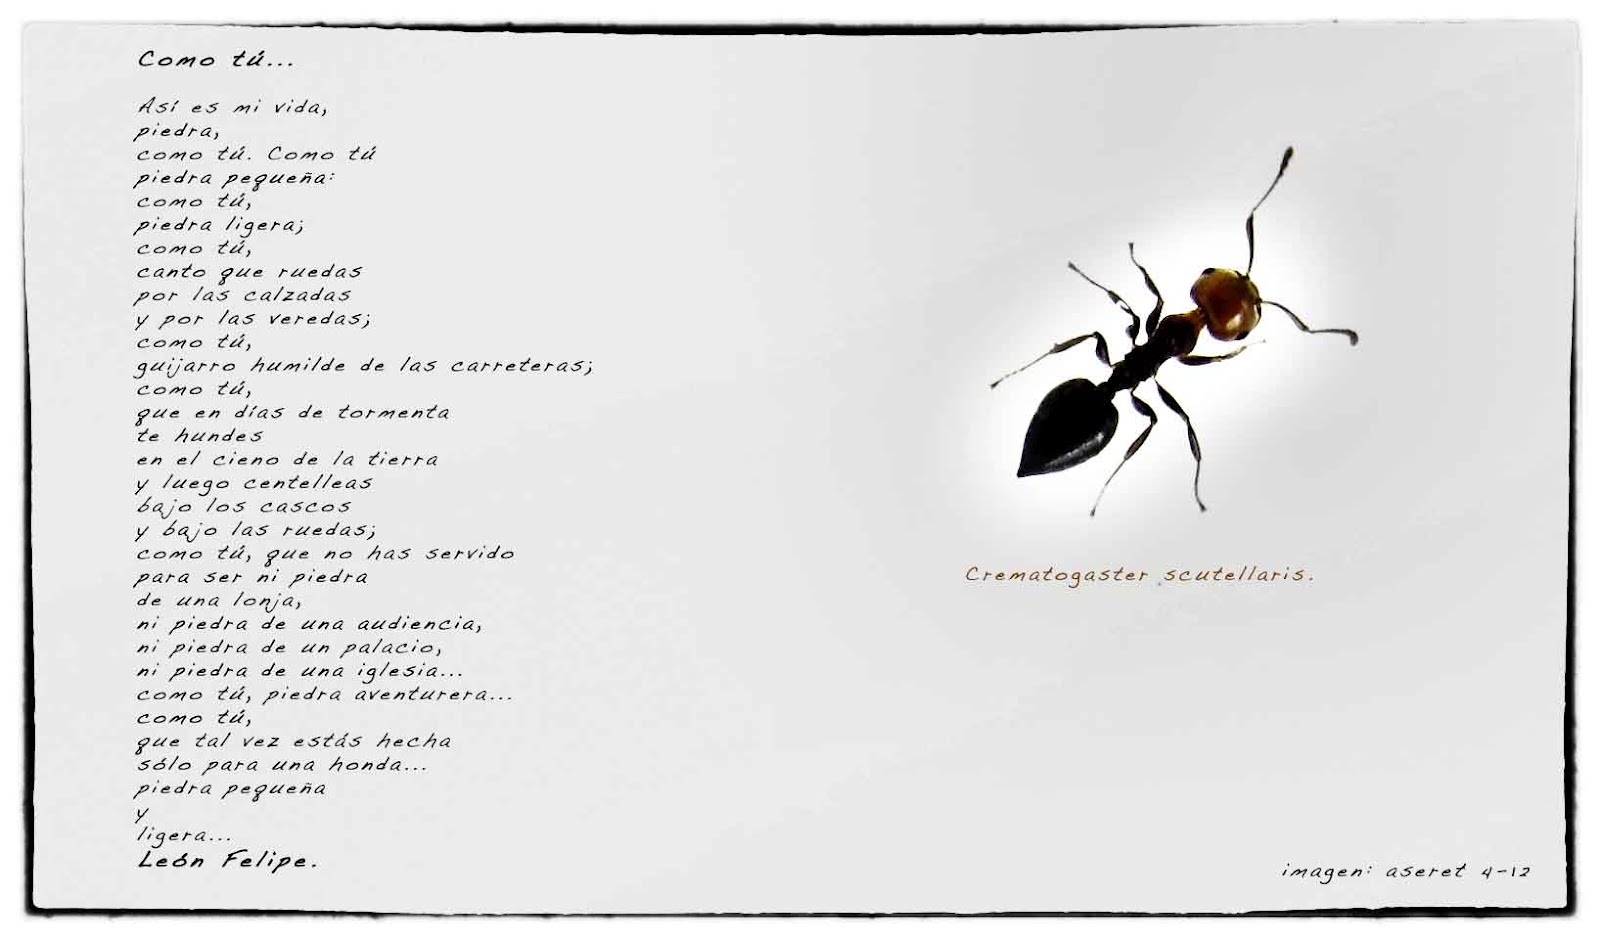 Como tú...
Así es mi vida,
piedra,
como tú. Como tú
piedra pequeña:
como tú,
piedra ligera;
como tú,
canto que ruedas
por las calzadas
y por las veredas;
como tú,
guijarro humilde de las carreteras;
como tú,
que en días de tormenta
te hundes
en el cieno de la tierra
y luego centelleas
bajo los cascos
y bajo las ruedas;
como tú, que no has servido
para ser ni piedra
de una lonja,
ni piedra de una audiencia,
ni piedra de un palacio,
ni piedra de una iglesia...
como tú, piedra aventurera...
como tú,
que tal vez estás hecha
sólo para una honda...
piedra pequeña
y
ligera...
León Felipe.
Crematogaster scutellaris.
imagen: aseret 4-12